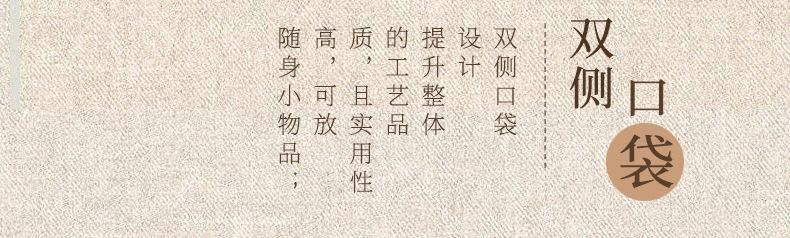 双侧
口袋
双侧口袋
设计
提升整体
的工艺品
质，且实用性
高，可放
随身小物品；